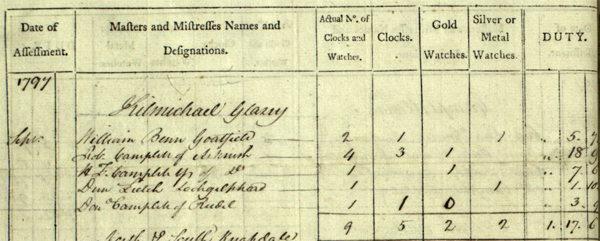 Date of Assessment. Masters and Mistresses Names and Designations. Actual No. of Clocks and Watches. Clocks. Gold Watches. Silver or Metal Watches. DUTY.
1797
Kilmichael Glassy
Sepr. William Benn Goatfield 2 1 1 „ 5.
Rob. Camplele of Asknish 4 3 1 „ 18 9
Camplele of Do 1 1 „ 7. 6
Dun Leitch Lochgilphead 1 1 „ 1. 10
Camplele of 1 1 0 „ 3. 9
9 5 2 2 1. 17. 6
North & South Knapdale